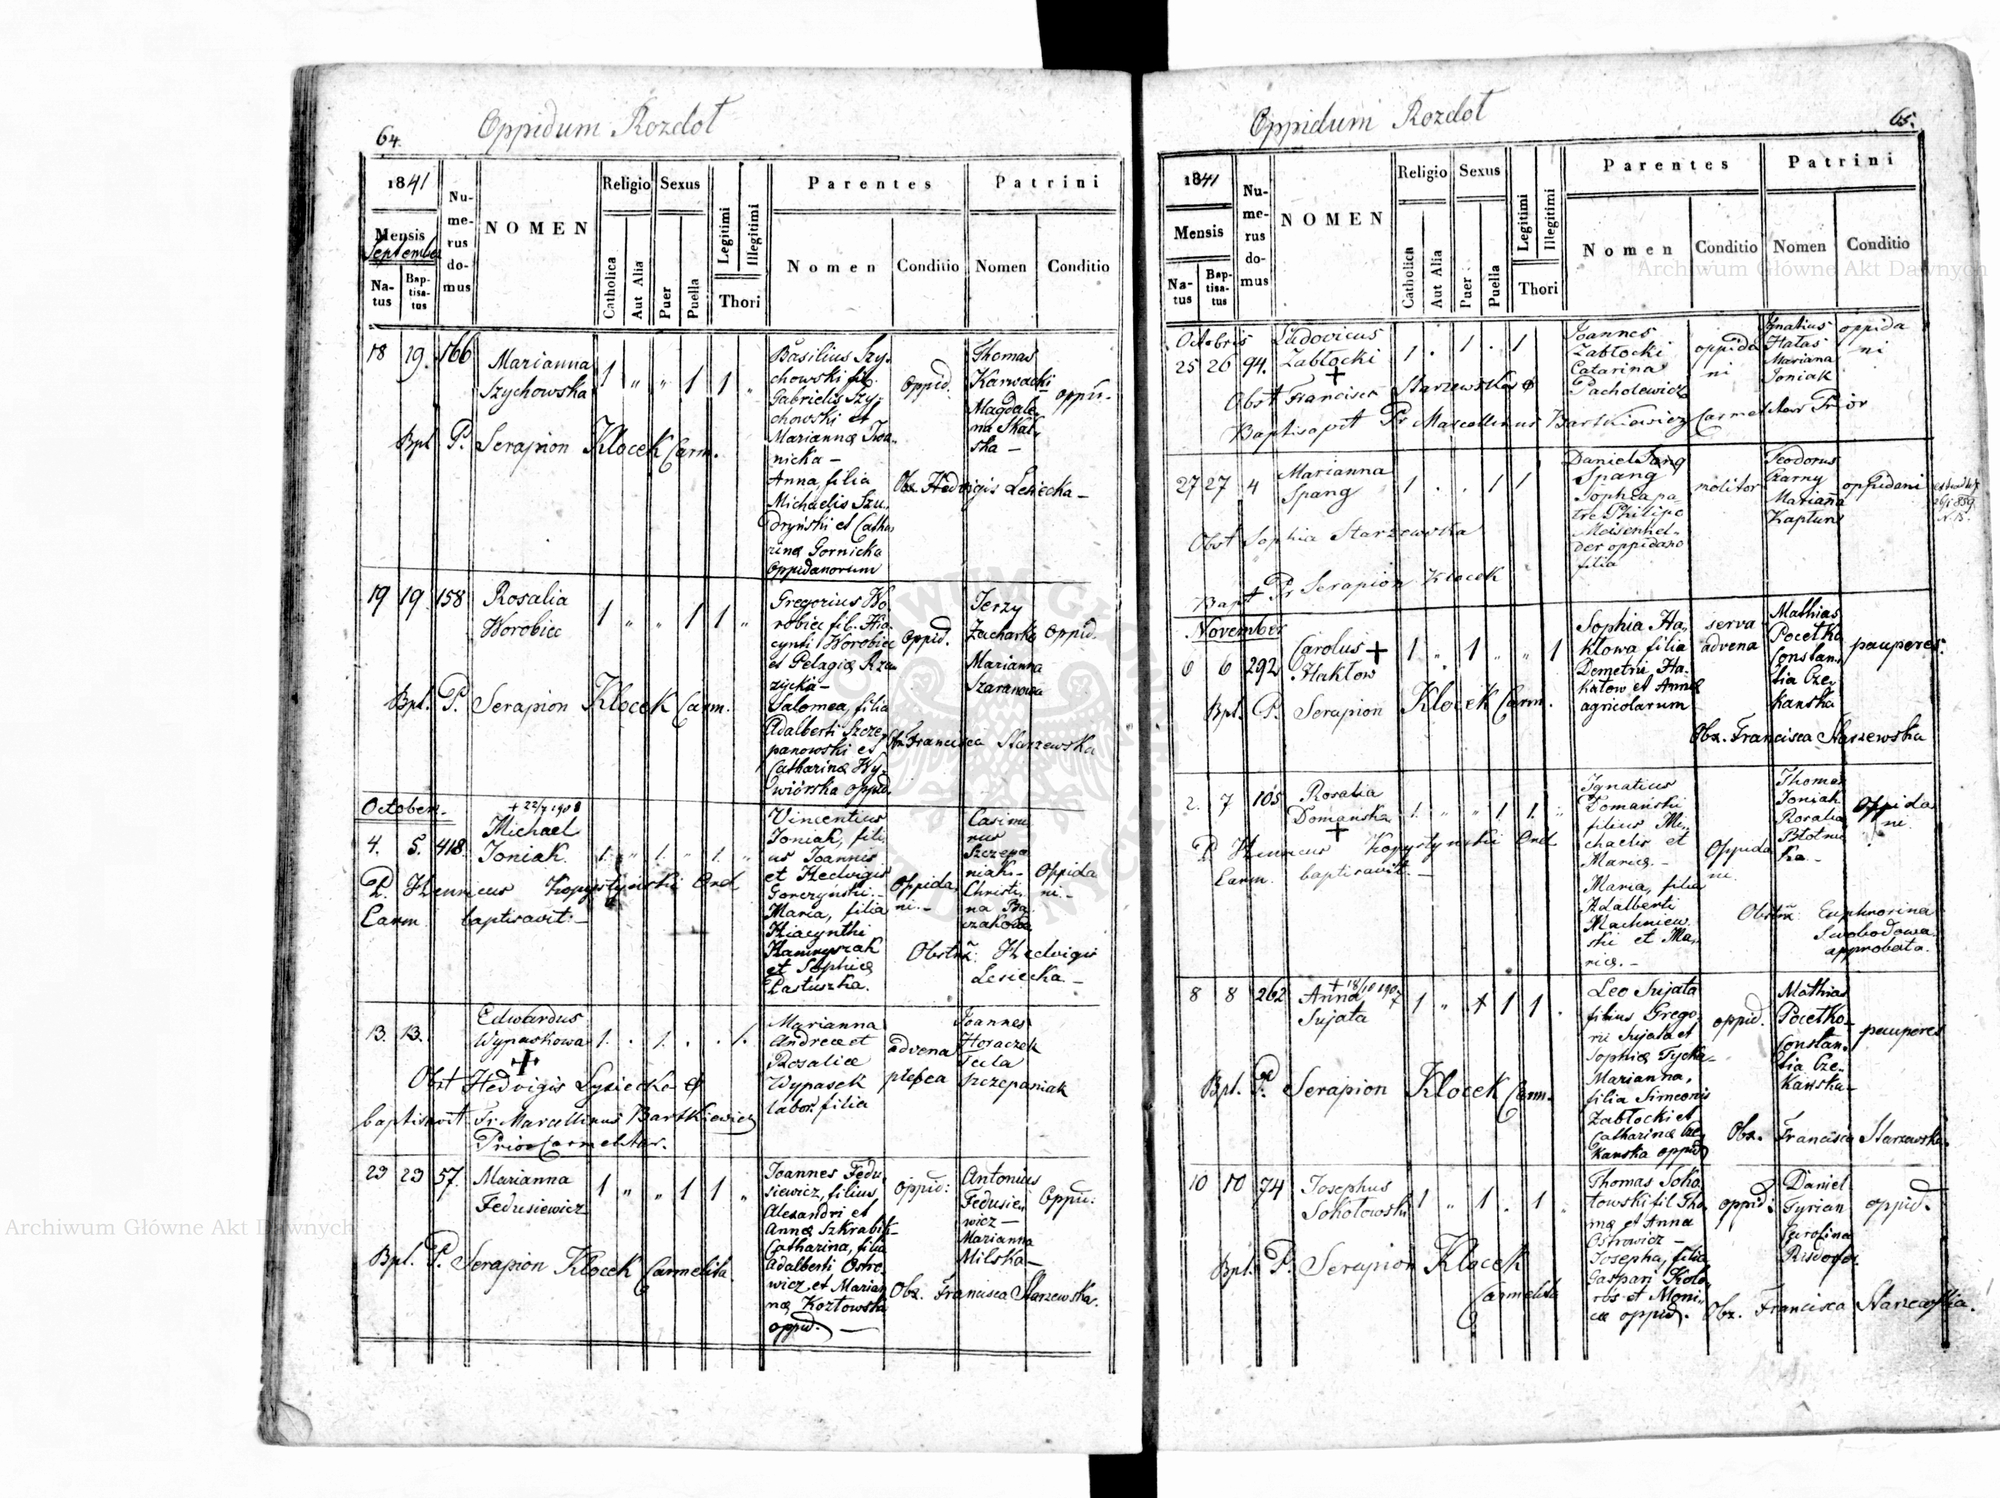 64.
Oppidum Rozdoł
1841
Mensis
September
Natus
Baptisatus
Numerus domus
NOMEN
Religio
Catholica
Aut Alia
Sexus
Puer
Puella
Legitimi
Illegitimi
Thori
Parentes
Nomen
Conditio
Patrini
Nomen
Conditio
18 19. 166
Marianna
Szychowska
1 " " 1 1 "
Basilius Szy-
chowski fil.
Gabrielis Szy-
chowski et
Mariannæ
nicka —
Anna, filia
Michaelis Szu-
dryński et Catha-
rinæ Gornicka
oppidanorum
Oppid.
Thomas
Karwacki
Magdale-
na Skal-
ska —
oppid.
Bpt. P. Serapion Klocek Carm.
Obs. Hedvigis Lesiecka —
19 19 158
Rosalia
Worobiec
1 " " 1 1 "
Gregorius Wo-
robiec fil. Hia-
cynti Worobiec
et Pelagiæ
Salomea, filia
Adalberti Szcze-
panowski et
Catharinæ Wy-
wiórska oppid.
Oppid.
Jerzy
Zacharko
Marianna
Szaranowa
Oppid.
Bpt. P. Serapion Klocek Carm.
Obs. Francisca Starzewska
October.
4. 5. 418.
+ 22/7 1908
Michael
Joniak.
1. " 1. " 1. "
Vincentius
Joniak, fili-
us Joannis
et Hedvigis
Gorczyński. —
Maria, filia
Hiacynthi
et Sophiæ
Pastuszka.
Oppida
ni. —
Casimi
rus
Szczepa
niak. —
Christi-
na
Oppida
ni. —
P. Henricus Kopystyński Ord.
Carm. baptisavit. —
Obstrx: Hedvigis
Lesiecka. —
13. 13.
Edwardus
Wypaskowa
+
1. . 1. . . 1.
Marianna
Andreæ et
Rosaliæ
Wypasek
labor. filia
advena
plebea
Joannes
Horaczek
Tecla
Szczepaniak
Obst Hedvigis Lysiecka et
baptisavit Fr. Marcellinus Bartkiewicz
Prior Carmelitar.
23 23 57.
Marianna
Fedusiewicz
1 " " 1 1 "
Joannes Fedu-
siewicz, filius
Alexandri et
Annæ Szkrabik —
Catharina, filia
Adalberti Ostro-
wicz, et Marian-
næ Kozłowska
oppid. —
oppid:
Antonius
Fedusie-
wicz —
Marianna
Milska —
Oppid:
Bpt. P. Serapion Klocek Carmelita.
Obs. Francisca Starzewska.
65.
Oppidum Rozdoł
1841
Mensis
Natus
Baptisatus
Numerus domus
NOMEN
Religio
Catholica
Aut Alia
Sexus
Puer
Puella
Legitimi
Illegitimi
Thori
Parentes
Nomen
Conditio
Patrini
Nomen
Conditio
Octobris
25 26 94.
Ludovicus
Zabłocki
+
1 . 1 . 1
Joannes
Zabłocki
Catarina
Pacholewicz
oppida
ni
Ignatius
Hałas
Mariana
Joniak
oppida
ni
Obst Francisca Starzewska et
Baptisavit Pr Marcellinus Bartkiewicz Carmelitar Prior
27 27 4
Marianna
Spang
1 . . 1 1
Daniel
Spang
Sophia pa
tre Philipo
Meisenhel-
der oppidano
filia
molitor
Teodorus
Czarny
Marianna
Kaptur
oppidani
Obst Sophia Starzewska
Bapt Pr Serapion Klocek
November
6 6 292
Carolus +
Hakłow
1 " 1 " " 1
Sophia Ha-
kłowa filia
Demetrii Ha-
kałow et Annæ
agricolarum
serva
advena
Mathias
Pocetko
Constan-
tia Cze-
kańska
pauperes.
Bpt. P. Serapion Klocek Carm.
Obs. Francisca Starzewska
2. 7 105
Rosalia
Domańska
+
1. " " 1 1. "
Ignatius
Domański
filius Mi-
chaelis et
Mariæ. —
Maria, filia
Adalberti
Machniew-
ski et Ma-
riæ. —
Oppida
ni.
Thomas
Joniak
Rosalia
Błotnic
ka. —
Oppida
ni.
P. Henricus Kopystyński Ord.
Carm. baptisavit. —
Obstrx: Euphrosina
Swobodowa
approbata.
8 8 262
+ 18/10 1907
Anna
Sujata
1 " 1 1 .
Leo Sujata
filius Grego-
rii Sujata et
Sophiæ Tycka —
Marianna,
filia Simeonis
Zabłocki et
Catharinæ Cze-
kanska oppid.
oppid.
Mathias
Pocetko —
Constan-
tia Cze-
kańska —
pauperes
Bpt. P. Serapion Klocek Carm.
Obs. Francisca Starzewska.
10 10 74
Josephus
Sokołowski
1 " 1 . 1 .
Thomas Soko-
łowski fil Tho-
mæ et Anna
Ostrowicz —
Josepha, filia
Gaspari Kolo-
ros et Moni-
cæ oppid.
oppid:
Daniel
Tyrian
Carolina
oppid.
Bpt. P. Serapion Klocek
Carmelita
Obs. Francisca Starzewska.
Archiwum Główne Akt Dawnych
Archiwum Główne Akt Dawnych